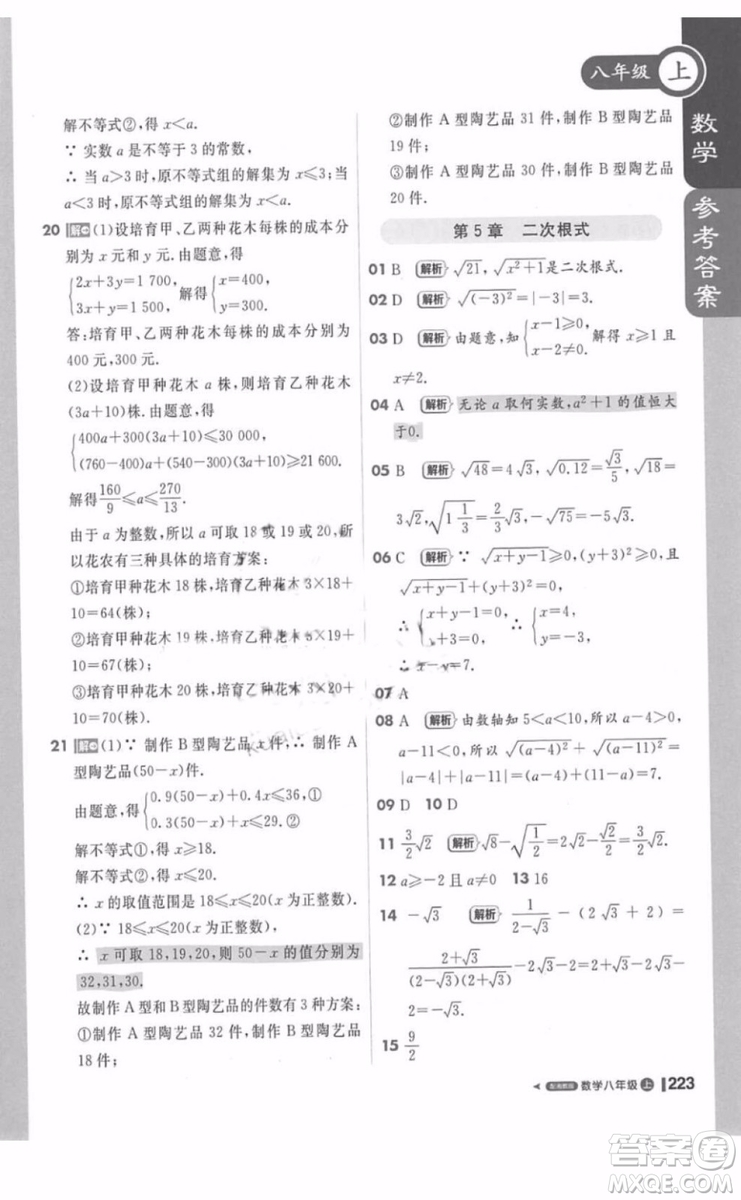 八年级 上
数学
参考答案
解不等式②,得 x<a.
∵ 实数 a 是不等于 3 的常数,
∴ 当 a>3 时,原不等式组的解集为 x≤3,当
a<3 时,原不等式组的解集为 x<a.
20 解 (1)设培育甲、乙两种花木每株的成本分
别为 x 元和 y 元. 由题意,得
{2x+3y=1 700, 3x+y=1 500, 解得{x=400, y=300.
答:培育甲、乙两种花木每株的成本分别为
400 元,300 元.
(2)设培育甲种花木 a 株,则培育乙种花木
(3a+10)株. 由题意,得
{400a+300(3a+10)≤30 000, (760-400)a+(540-300)(3a+10)≥21 600.
解得160/9≤a≤270/13.
由于 a 为整数,所以 a 可取 18 或 19 或 20,所
以花农有三种具体的培育方案:
①培育甲种花木 18 株,培育乙种花木 3×18+
10=64(株);
②培育甲种花木 19 株,培育乙种花木 3×19+
10=67(株);
③培育甲种花木 20 株,培育乙种花木 3×20+
10=70(株).
21 解 (1)∵ 制作 B 型陶艺品 x 件,∴ 制作 A
型陶艺品(50-x)件.
由题意,得{0.9(50-x)+0.4x≤36,① 0.3(50-x)+x≤29. ②
解不等式①,得 x≥18.
解不等式②,得 x≤20.
∴ x 的取值范围是 18≤x≤20(x 为正整数).
(2)∵ 18≤x≤20(x 为正整数),
∴ x 可取 18,19,20,则 50-x 的值分别为
32,31,30.
故制作 A 型和 B 型陶艺品的件数有 3 种方案:
①制作 A 型陶艺品 32 件,制作 B 型陶艺品
18 件;
②制作 A 型陶艺品 31 件,制作 B 型陶艺品
19 件;
③制作 A 型陶艺品 30 件,制作 B 型陶艺品
20 件.
第 5 章 二次根式
01 B 解析 √21,√(x²+1)是二次根式.
02 D 解析 √((-3)²)=|-3|=3.
03 D 解析 由题意,知{x-1≥0, x-2≠0. 解得 x≥1 且
x≠2.
04 A 解析 无论 a 取何实数,a²+1 的值恒大
于0.
05 B 解析 √48=4√3,√0.12=√3/5,√18=
3√2,√(1 1/3)=2/3√3,-√75=-5√3.
06 C 解析 ∵ √(x+y-1)≥0,(y+3)²≥0,且
√(x+y-1)+(y+3)²=0,
∴ {x+y-1=0, y+3=0. ∴ {x=4, y=-3.
∴ x-y=7.
07 A
08 A 解析 由数轴知 5<a<10,所以 a-4>0,
a-11<0,所以 √((a-4)²)+√((a-11)²)=
|a-4|+|a-11|=a-4+11-a=7.
09 D 10 D
11 3/2√2 解析 √8-√(1/2)=2√2-√2/2=3/2√2.
12 a≥-2 且 a≠0 13 16
14 -√3 解析 1/(2-√3)-2√3-2=
(2+√3)/((2-√3)(2+√3))-2√3-2=2+√3-2√3-
2=-√3.
15 9/2
数学八年级 上 223
答案圈
MXQE.COM